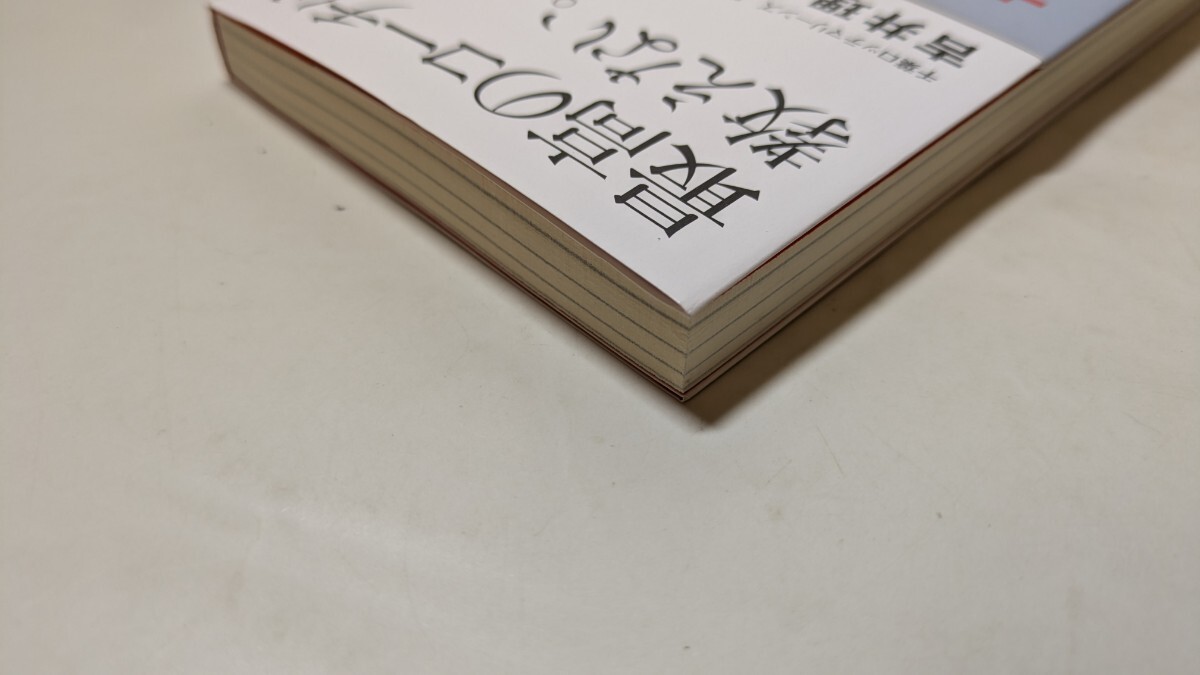 最高のコーチ
教えない。
千葉ロッテマリーンズ
吉井理